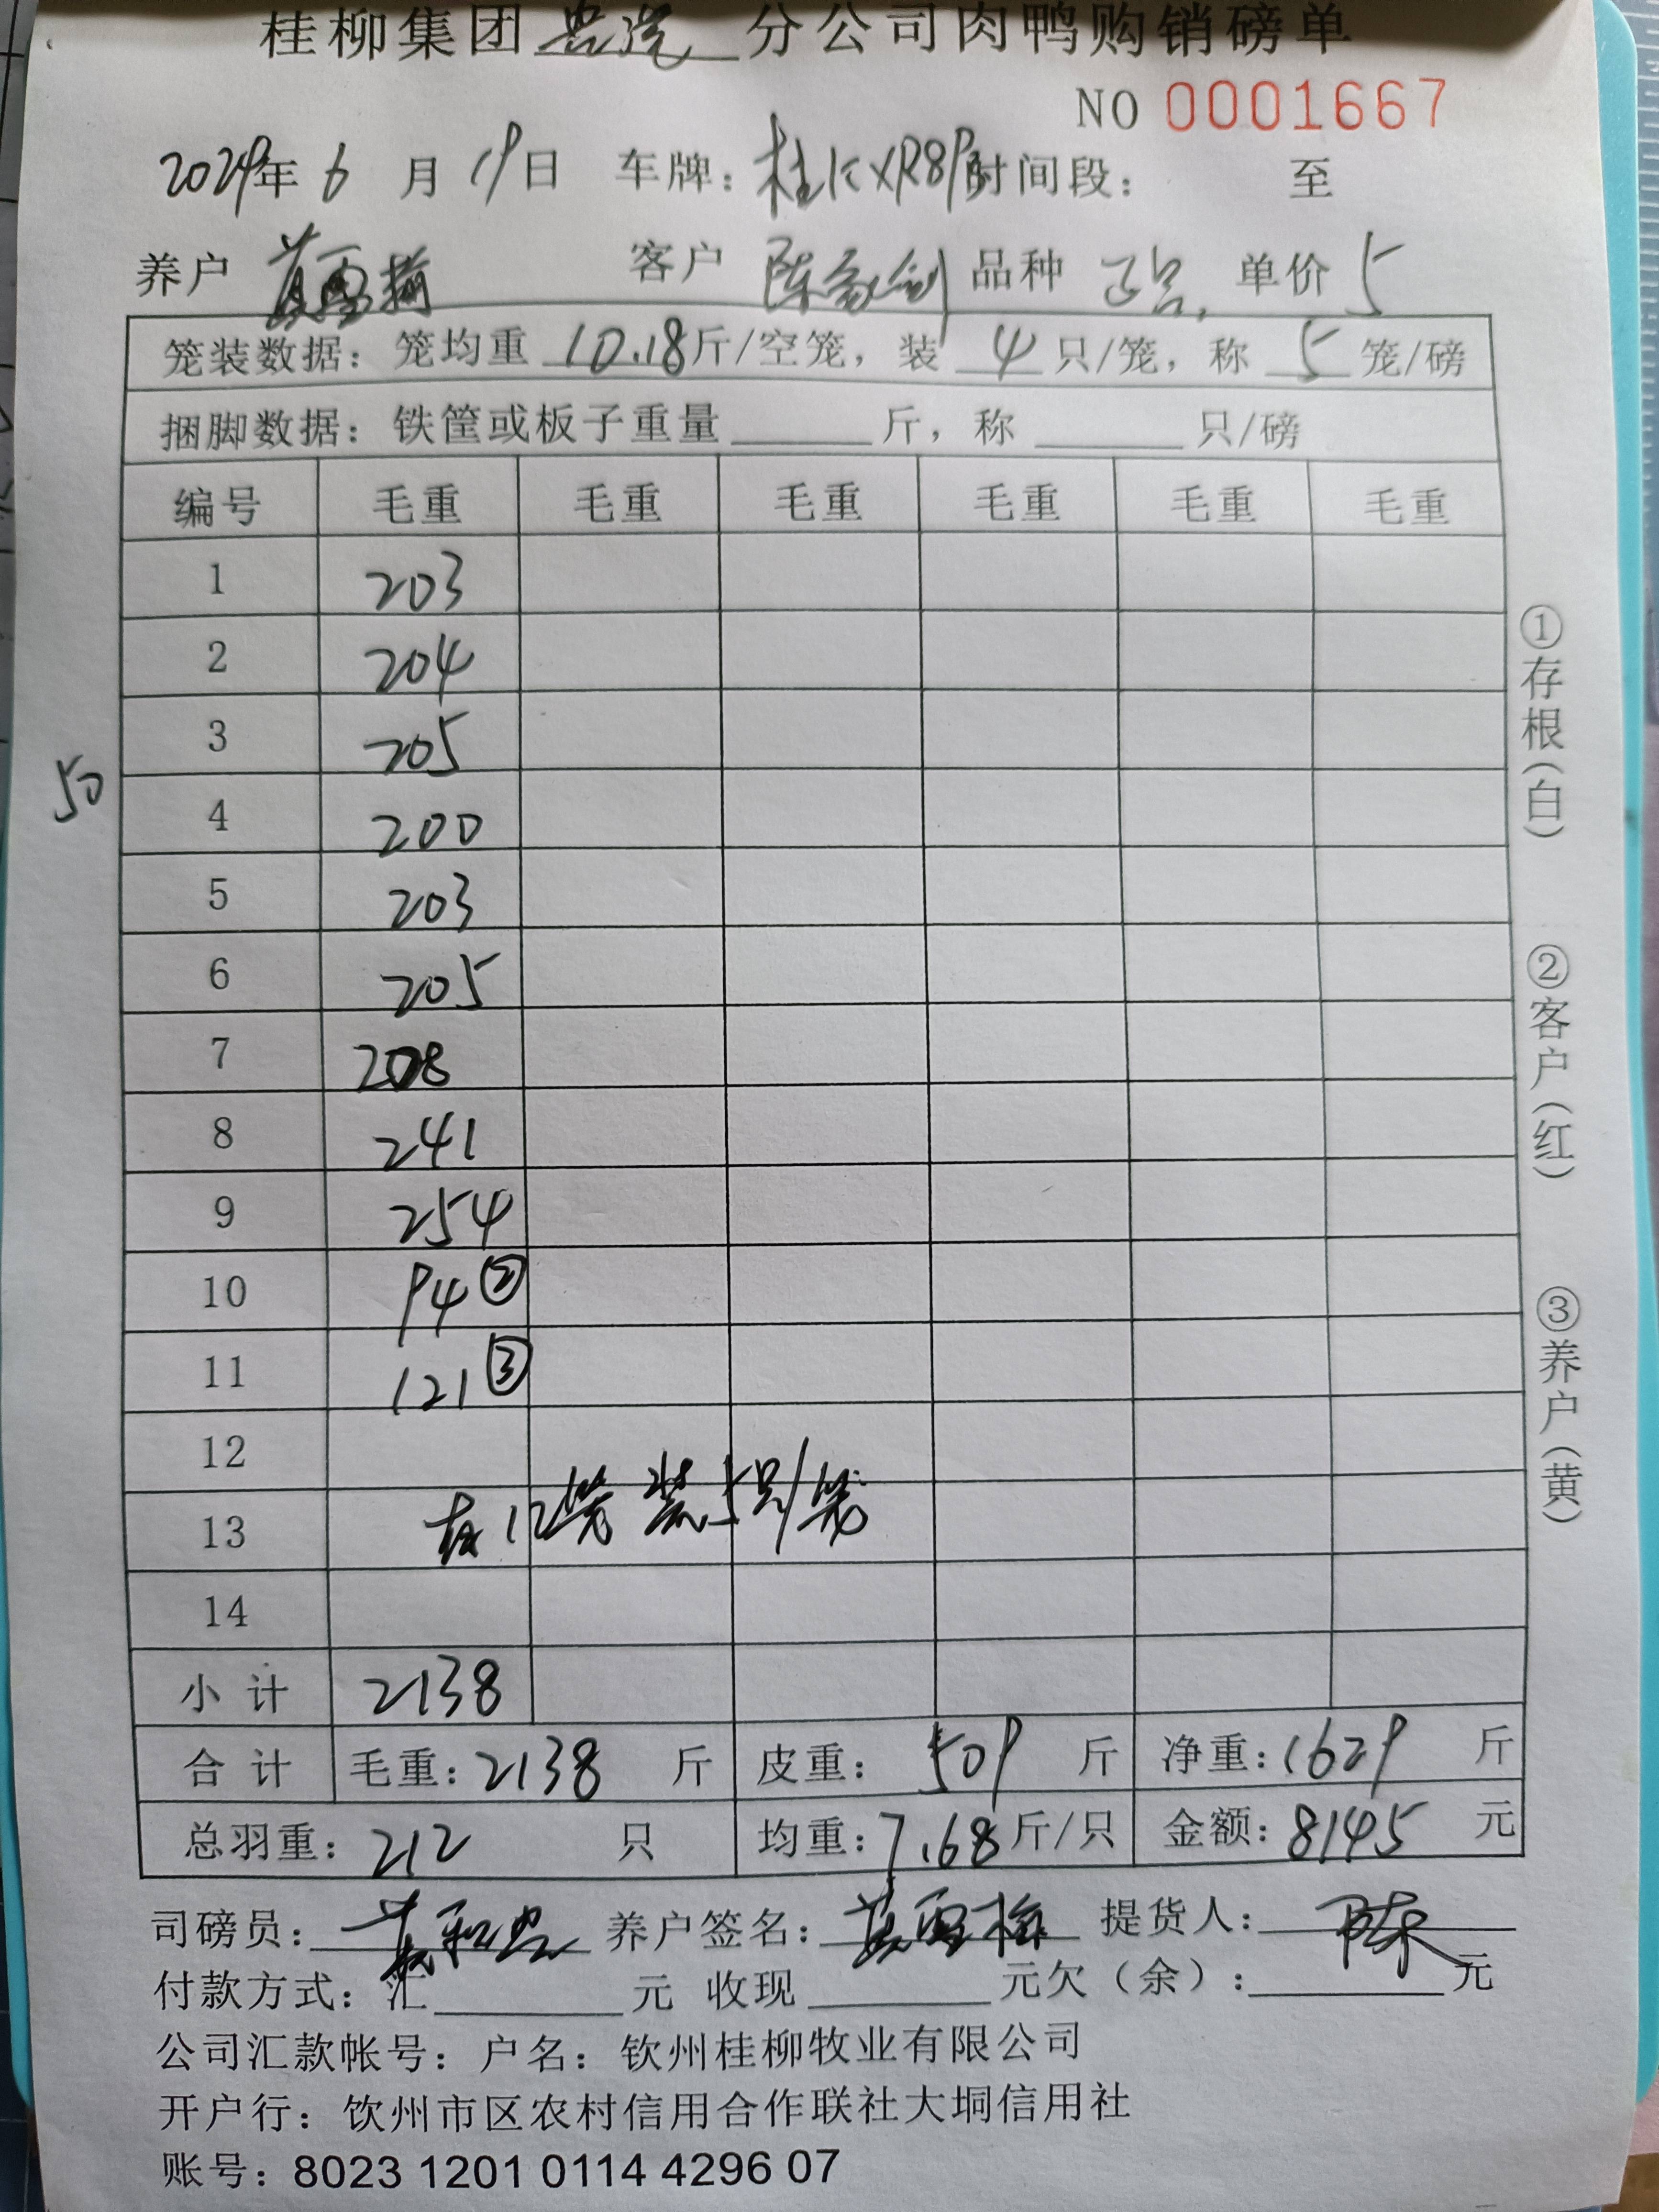 桂柳集团 分公司肉鸭购销磅单
NO 0001667
2024年 6 月 19日 车牌： 时间段： 至
养户 客户 陈 品种 单价 5
笼装数据：笼均重 10.18斤/空笼，装 4 只/笼，称 5 笼/磅
捆脚数据：铁筐或板子重量 斤，称 只/磅
编号 毛重 毛重 毛重 毛重 毛重 毛重
1 203
2 204
3 205
50
4 200
5 203
6 205
7 208
8 241
9 254
10 94②
11 121③
12
13 有12笼装5只/笼
14
小计 2138
合计 毛重：2138 斤 皮重：509 斤 净重：1629 斤
总羽重：212 只 均重：7.68斤/只 金额：8145 元
司磅员： 养户签名： 提货人：陈
付款方式：汇 元 收现 元欠（余）： 元
公司汇款帐号：户名：钦州桂柳牧业有限公司
开户行：钦州市区农村信用合作联社大垌信用社
账号：8023 1201 0114 4296 07
①存根（白）
②客户（红）
③养户（黄）